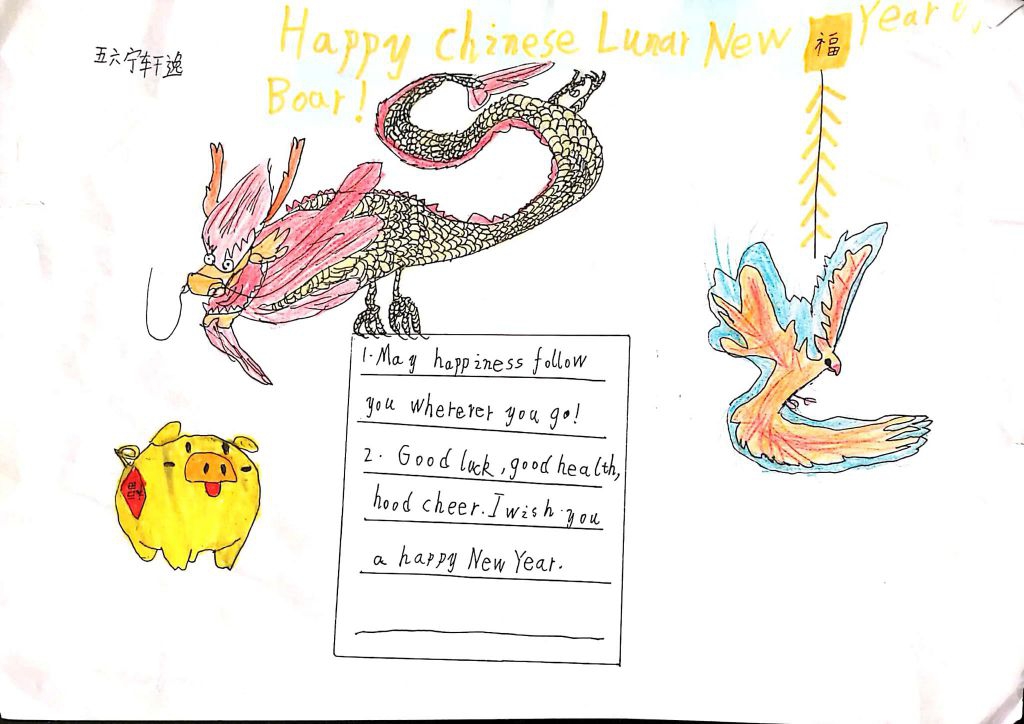 五六宁轩逸
Happy Chinese Lunar New
福
Year
Boar!
1. May happiness follow
you wherever you go!
2. Good luck, good health,
hood cheer. I wish you
a happy New Year.